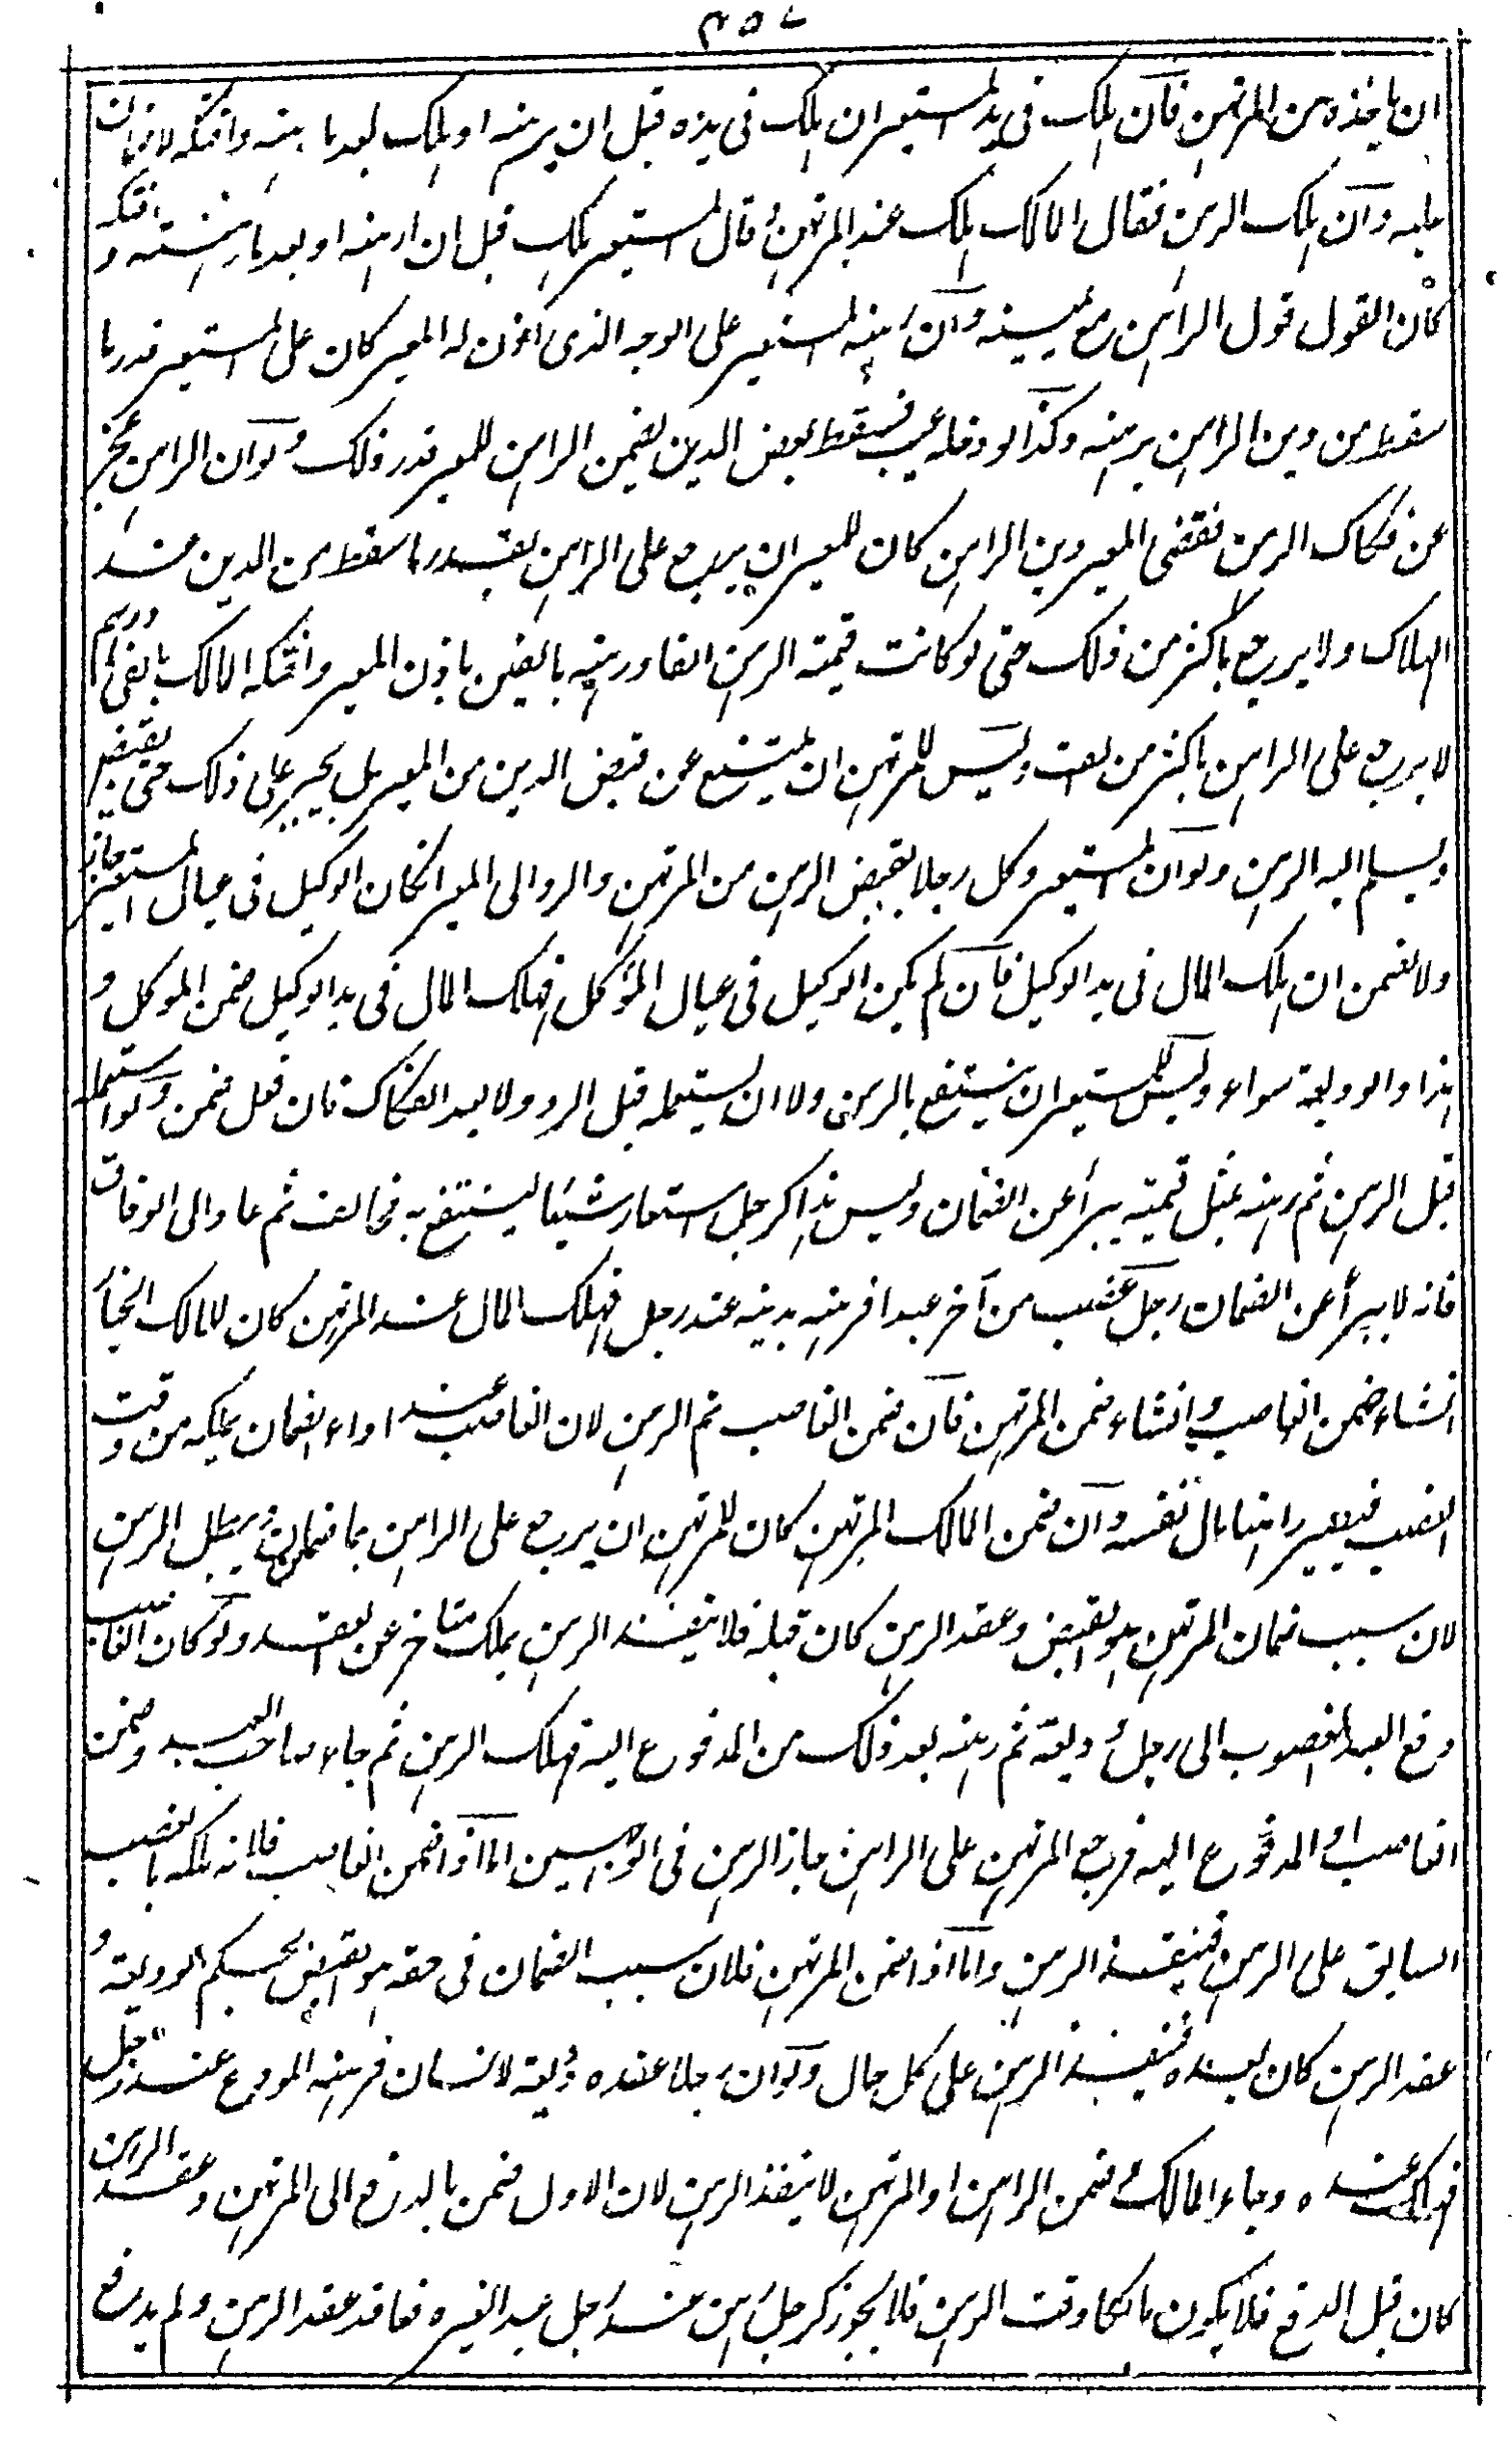 ٤٥٧
ان ياخذه من المرتهن فان هلك في يد المستعير ان هلك في يده قبل ان يرهنه او هلك بعد ما رهنه وافتكه لا ضمان
عليه وان هلك الرهن فقال المالك هلك عند المرتهن وقال المستعير هلك قبل ان ارهنه او بعد ما رهنته وافتكه
كان القول قول الراهن مع يمينه وان رهنه المستعير على الوجه الذي اذن له المعير كان على المستعير قدر ما
سقط من دين الراهن برهنه وكذا لو دخله عيب فسقط بعض الدين يضمن الراهن للمعير قدر ذلك ولو ان الراهن عجز
عن فكاك الرهن فقضى المعير دين الراهن كان للمعير ان يرجع على الراهن بقدر ما سقط من الدين عند
الهلاك ولا يرجع باكثر من ذلك حتى لو كانت قيمة الرهن الفا ورهنه بالفين باذن المعير وافتكه المالك بالفي درهم
لا يرجع على الراهن باكثر من الف وليس للمرتهن ان يمتنع عن قبض الدين من المعير بل يجبر على ذلك حتى يقبض
ويسلم اليه الرهن ولو ان المستعير وكل رجلا بقبض الرهن من المرتهن والرد الى المعير انكان الوكيل في عيال المستعير جاز
ولا يضمن ان هلك المال في يد الوكيل فان لم يكن الوكيل في عيال الموكل فهلك المال في يد الوكيل ضمن الموكل و
هذا والوديعة سواء وليس للمستعير ان ينتفع بالرهن ولا ان يستعمله قبل الرد ولا بعد الفكاك فان فعل ضمن ولو استعمله
قبل الرهن ثم رهنه بمثل قيمته يبرأ عن الضمان وليس هذا كرجل استعار شيئا لينتفع به فخالف ثم عاد الى الوفاق
فانه لا يبرأ عن الضمان رجل غصب من آخر عبدا فرهنه بدينه عند رجل فهلك المال عند المرتهن كان للمالك الخيار
انشاء ضمن الغاصب وانشاء ضمن المرتهن فان ضمن الغاصب تم الرهن لان الغاصب عند اداء الضمان يملكه من وقت
الغصب فيصير راهنا مال نفسه وان ضمن المالك المرتهن كان للمرتهن ان يرجع على الراهن بما ضمن ويبطل الرهن
لان سبب ضمان المرتهن هو القبض وعقد الرهن كان قبله فلا ينفذ الرهن بملك متاخر عن العقد ولو كان الغاصب
دفع العبد المغصوب الى رجل وديعة ثم رهنه بعد ذلك من المدفوع اليه فهلك الرهن ثم جاء صاحب العبد وضمن
الغاصب او المدفوع اليه فرجع المرتهن على الراهن جاز الرهن في الوجهين اما اذا ضمن الغاصب فلانه ملكه بالغصب
السابق على الرهن فينفذ الرهن واما اذا ضمن المرتهن فلان سبب الضمان في حقه هو القبض بحكم الوديعة و
عقد الرهن كان بعده فينفذ الرهن على كل حال ولو ان رجلا عنده وديعة لانسان فرهنه المودع عند رجل
فهلك عنده وجاء المالك وضمن الراهن او المرتهن لا ينفذ الرهن لان الاول ضمن بالدفع الى المرتهن وعقد الرهن
كان قبل الدفع فلا يكون مالكا وقت الرهن فلا يجوز كرجل رهن عند رجل عبد الغيره فعاقد عقد الرهن ولم يدفع